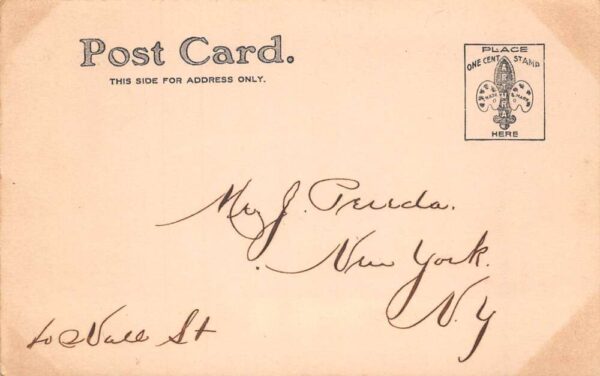 Post Card.
THIS SIDE FOR ADDRESS ONLY.
PLACE
ONE CENT STAMP
HERE
J.
New York.
N.Y
St